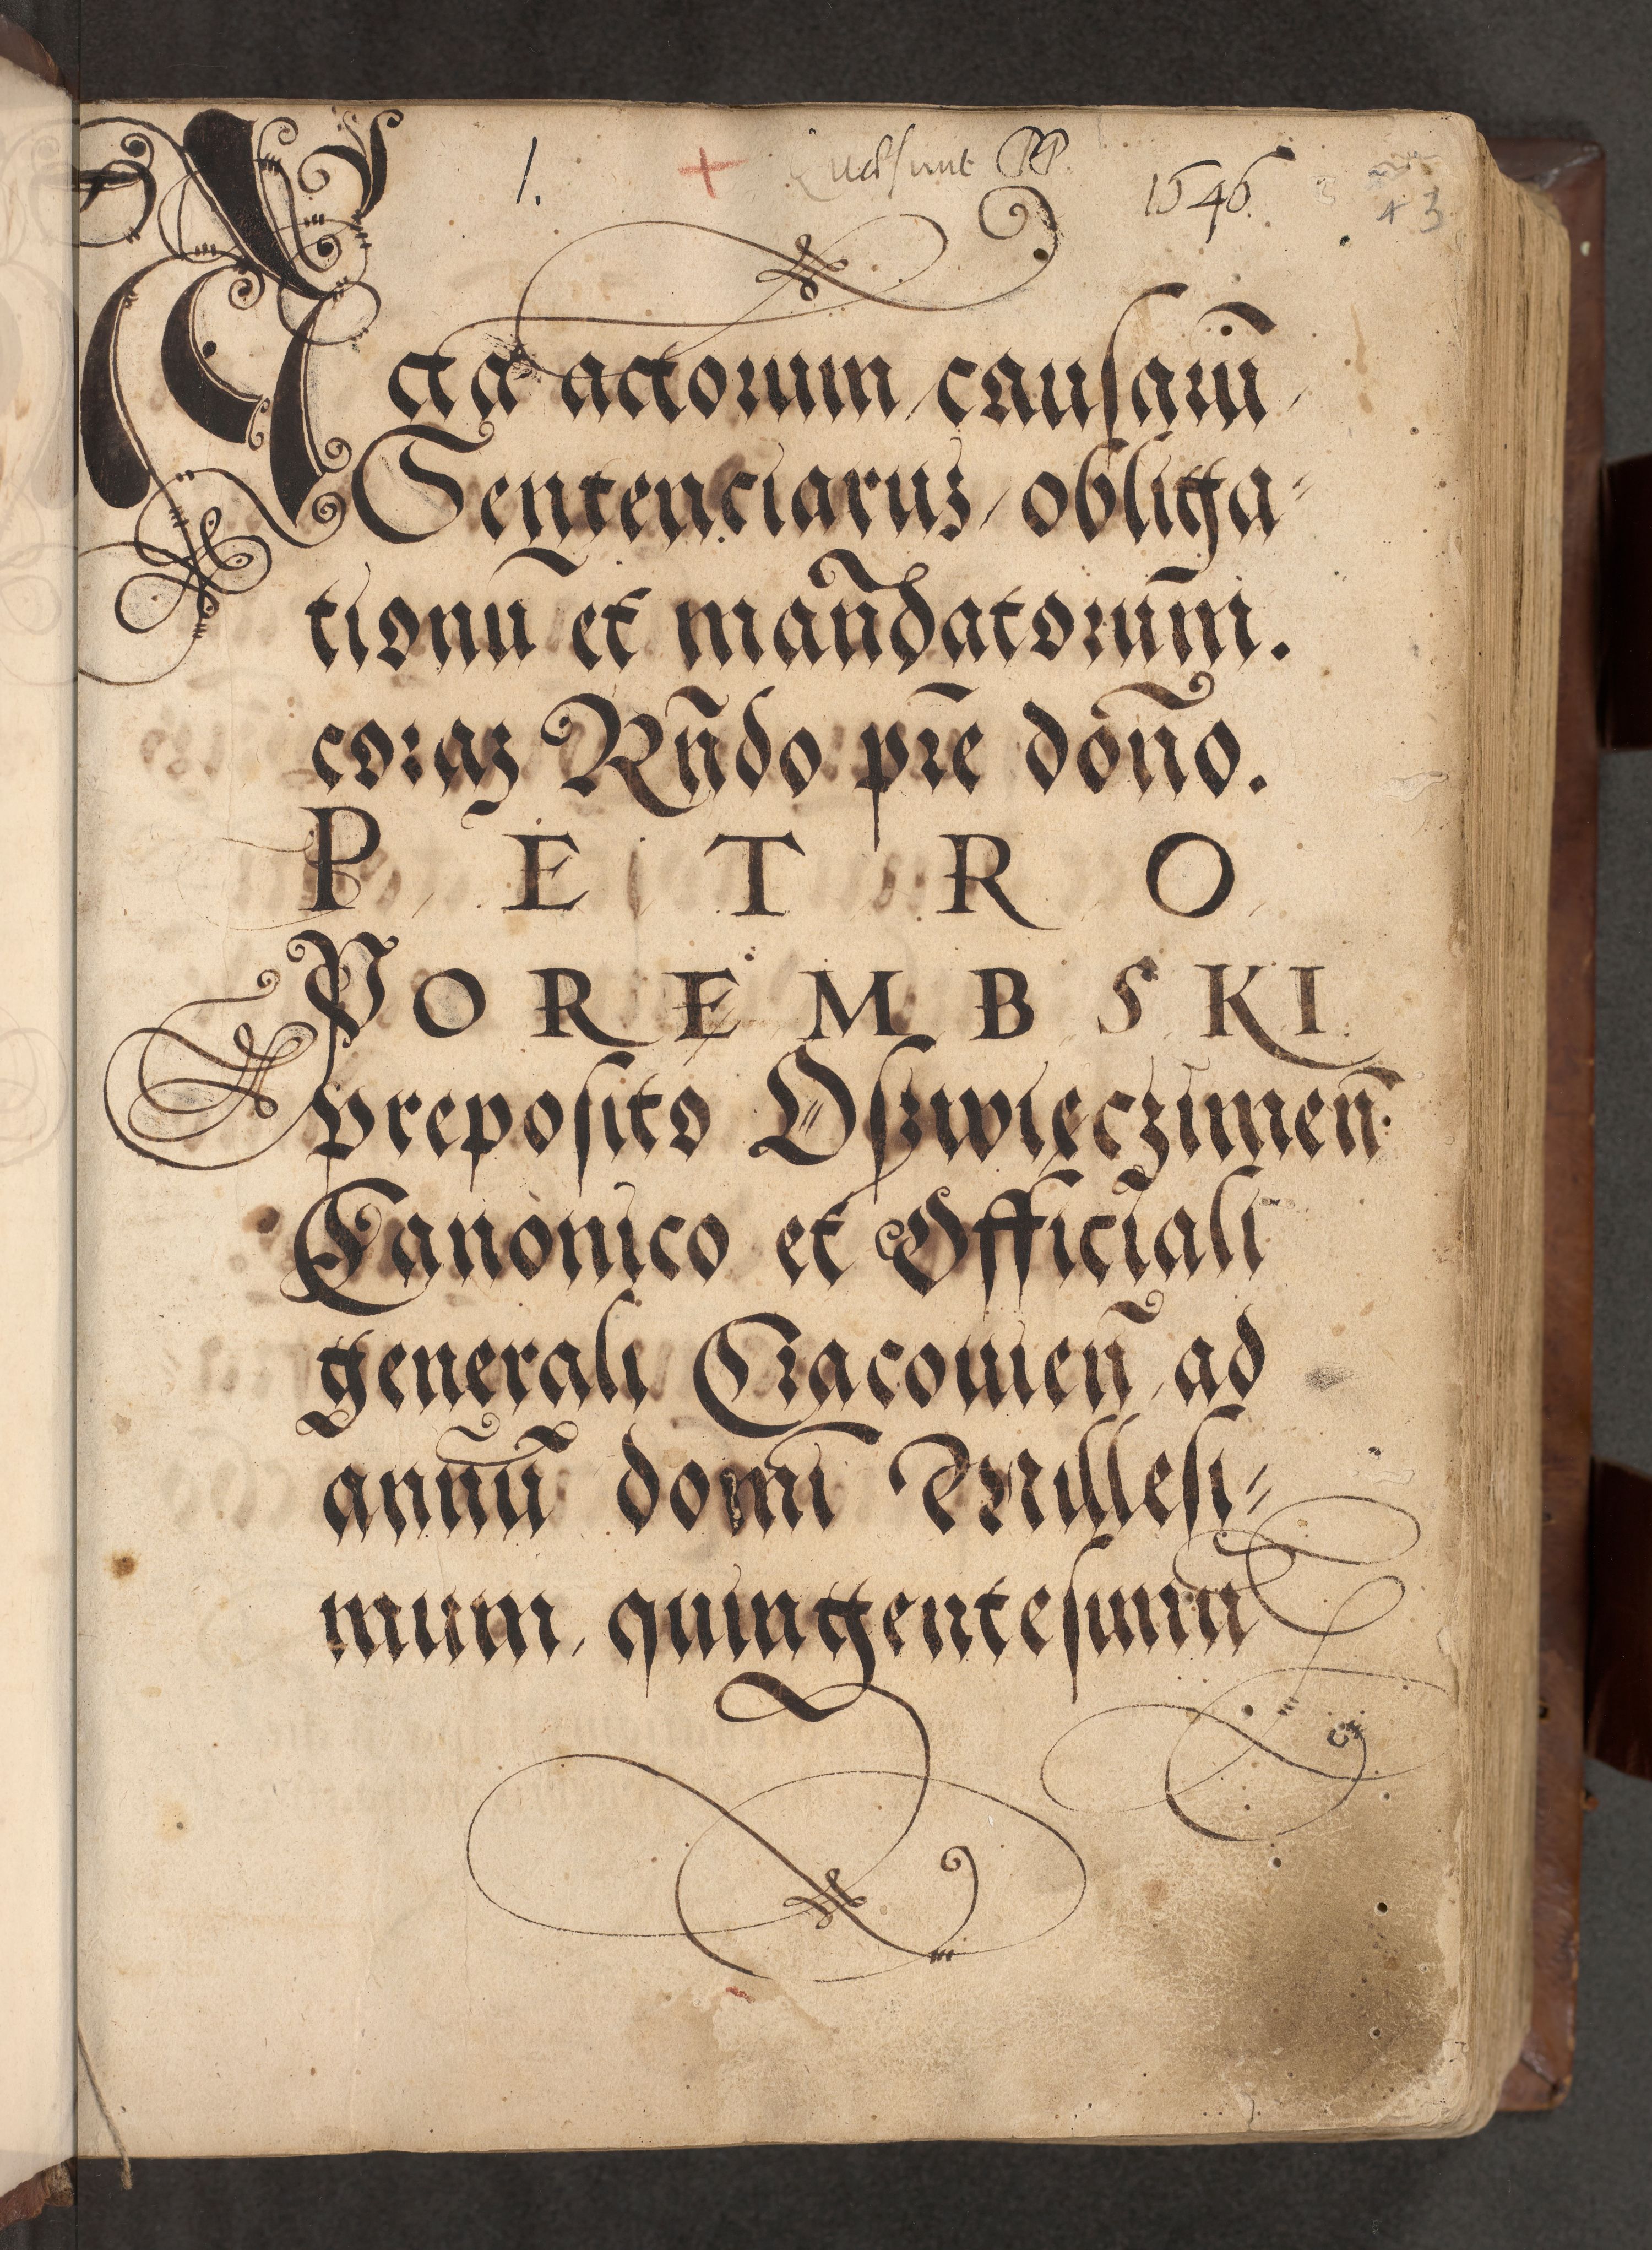 1. + 1546 3
43
Acta actorum, causarū,
Sentenciaruʒ, obliga-
tionū et man̄datorum̄.
coraʒ Rn̄do pr̄e don̄o.
P E T R O
POREMBSKI
preposito Osʒwięcʒimen̄.
Canonico et Officiali
generali Cracouien̄, ad
annū̄ domī Millesi-
mum, quingentesimū